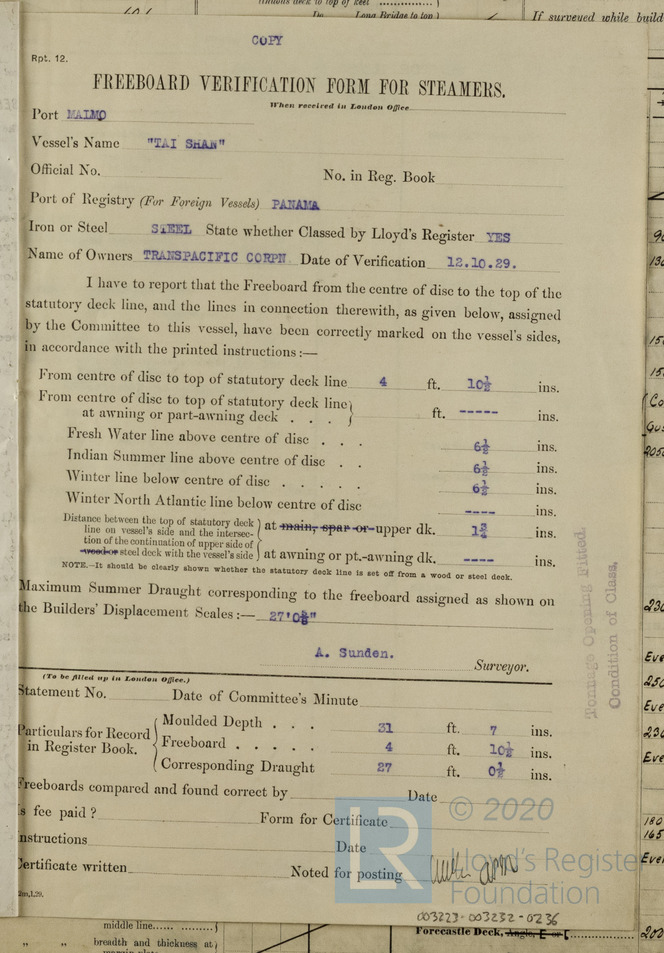 COPY
Rpt. 12.
FREEBOARD VERIFICATION FORM FOR STEAMERS.
When received in London Office
Port MALMO
Vessel's Name "TAI SHAN"
Official No. No. in Reg. Book
Port of Registry (For Foreign Vessels) PANAMA
Iron or Steel STEEL State whether Classed by Lloyd's Register YES
Name of Owners TRANSPACIFIC CORPN Date of Verification 12.10.29.
I have to report that the Freeboard from the centre of disc to the top of the
statutory deck line, and the lines in connection therewith, as given below, assigned
by the Committee to this vessel, have been correctly marked on the vessel's sides,
in accordance with the printed instructions:—
From centre of disc to top of statutory deck line 4 ft. 10½ ins.
From centre of disc to top of statutory deck line
at awning or part-awning deck . . . ft. ----- ins.
Fresh Water line above centre of disc . . . 6½ ins.
Indian Summer line above centre of disc . . 6½ ins.
Winter line below centre of disc . . . . . 6½ ins.
Winter North Atlantic line below centre of disc ---- ins.
Distance between the top of statutory deck
line on vessel's side and the intersec-
tion of the continuation of upper side of
wood or steel deck with the vessel's side
at main, spar or upper dk. ins.
at awning or pt.-awning dk. ---- ins.
NOTE.—It should be clearly shown whether the statutory deck line is set off from a wood or steel deck.
Maximum Summer Draught corresponding to the freeboard assigned as shown on
the Builders' Displacement Scales:—
A. Sunden.
Surveyor.
(To be filled up in London Office.)
Statement No. Date of Committee's Minute
Particulars for Record
in Register Book.
Moulded Depth . . . 31 ft. 7 ins.
Freeboard . . . . . 4 ft. 10½ ins.
Corresponding Draught 27 ft. 0½ ins.
Freeboards compared and found correct by Date
Is fee paid? Form for Certificate
Instructions Date
Certificate written Noted for posting
2m,1,29.
Tonnage Opening Fitted.
Condition of Class,
LR
© 2020
Lloyd's Register
Foundation
003223-003232-0236
middle line
„ „ breadth and thickness at
Forecastle Deck, Angle, E or [
Long Bridge to top)
If surveyed while build